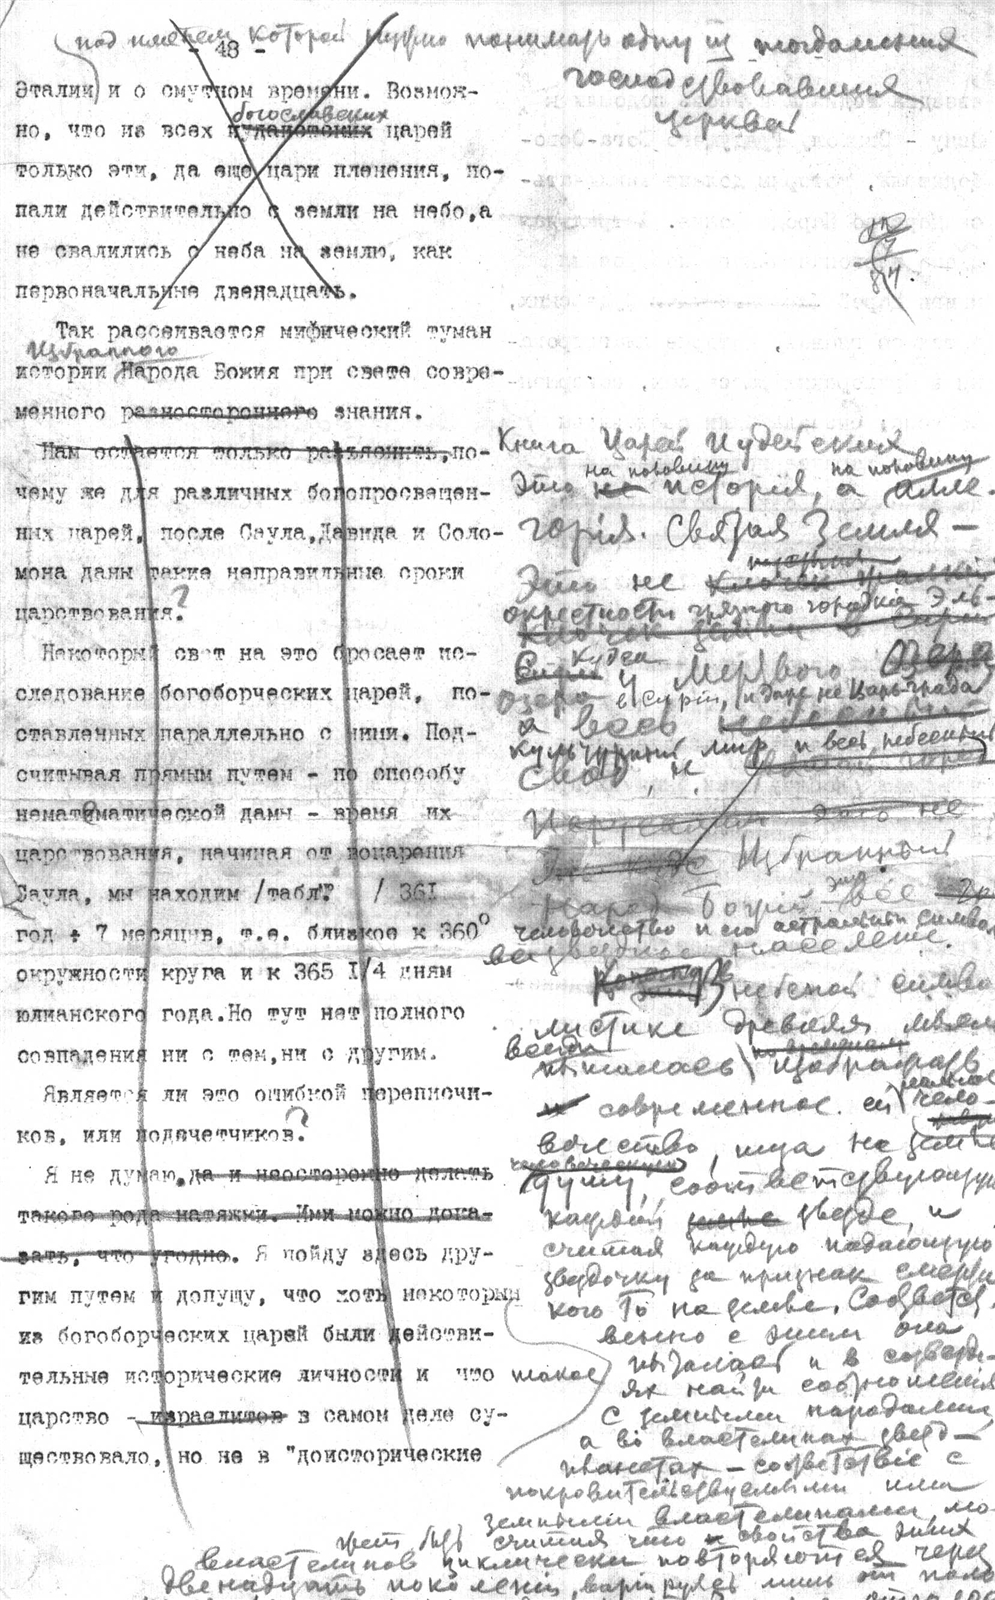 под именем которой нужно понимать одну из
господствовавших
церквей
- 48 -
Эталии) и о смутном времени. Возмож-
богославских
но, что из всех иудаистских царей
только эти, да еще цари пленения, по-
пали действительно с земли на небо,а
не свалились с неба на землю, как
первоначальные двенадцать.
Так рассеивается мифический туман
Избранного
истории Народа Божия при свете совре-
менного разностороннего знания.
Нам остается только разъяснить,по-
чему же для различных богопросвещен-
ных царей, после Саула,Давида и Соло-
мона даны такие неправильные сроки
царствования?
Некоторый свет на это бросает ис-
следование богоборческих царей, по-
ставленных параллельно с ними. Под-
считывая прямым путем - по способу
нематематической дамы - время их
царствования, начиная от воцарения
Саула, мы находим /табл. / 361
год + 7 месяцив, т.е. близкое к 360°
окружности круга и к 365 1/4 дням
юлианского года.Но тут нет полного
совпадения ни с тем,ни с другим.
Является ли это ошибкой переписчи-
ков, или подсчетчиков?
Я не думаю,да и неосторожно делать
такого рода натяжки. Ими можно дока-
зать, что угодно. Я пойду здесь дру-
гим путем и допущу, что хоть некоторыи
из богоборческих царей были действи-
тельные исторические личности и что такое
царство - израелитов в самом деле су-
ществовало, но не в "доисторические
Книга Царей Иудейских
на половину на половину
Это не история, а алле-
горія. Святая Земля —
Это не
окрестности
Мертвого Озера
озера в Сиріи, и даже не Царь-града
а весь
культурный мир и весь небесный
свод, не
Избранный
Народ Божий это все
человечество и его астральный символ
все звездное население.
В небесной симво
листике древняя мысль
всегда
пыталась изображать
современное ей чело-
вечество, ища на земле
человеческую
душу, соответствующую
каждой звезде, и
считая каждую падающую
звездочку за признак смерти
кого то на земле. Соответст
венно с этим она
пыталась и в созвезди-
ях найти соотношения
с земными народами,
а во властелинах звезд —
планетах — соответствіе с
покровительствуемыми ими
земными властелинами, мо-
жет быть считая что свойства этих
властелинов циклически повторяются через
двенадцать поколеній, варіируясь лишь от